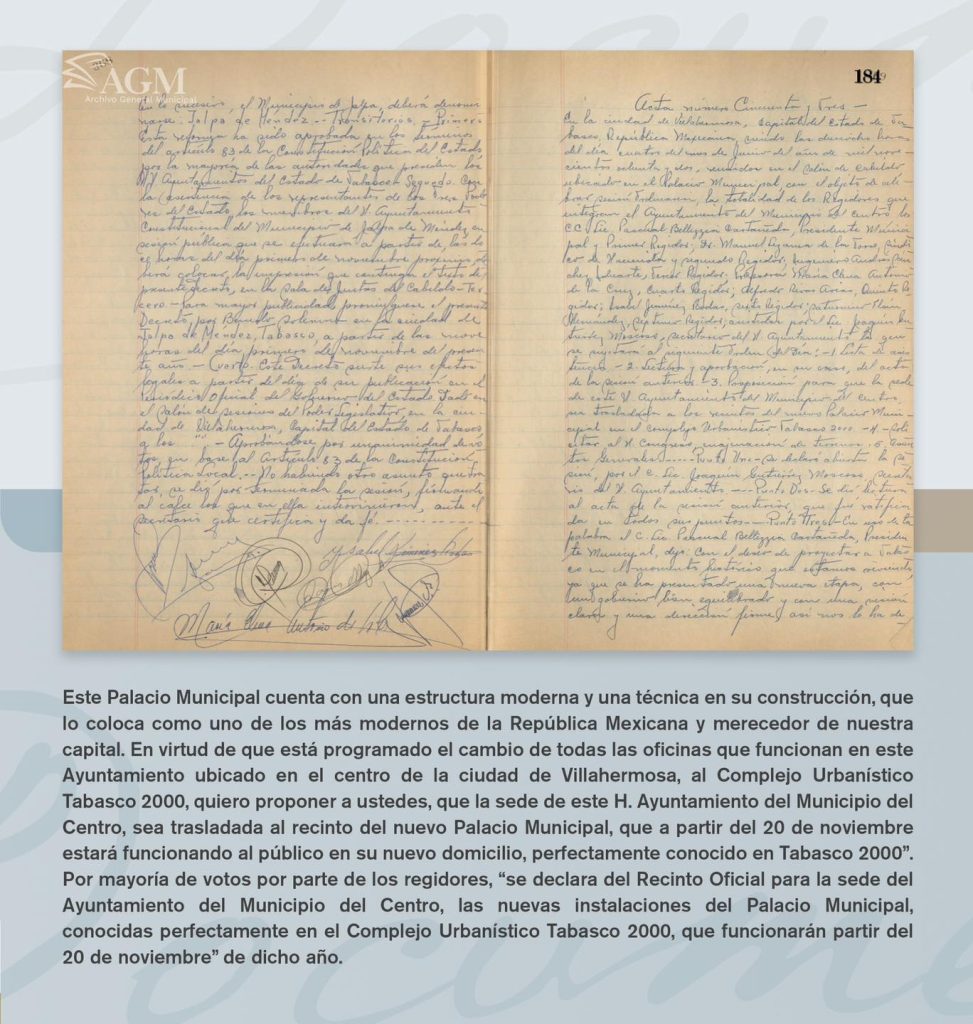 AGM
Archivo General Municipal
184
en lo sucesivo, el Municipio de Jalpa, deberá denominarse
Jalpa de Méndez.- Transitorios.- Primero
Esta reforma ha sido aprobada en los términos
del artículo 83 de la Constitución Política del Estado
por la mayoría de las autoridades que presiden los
H. Ayuntamientos del Estado de Tabasco.- Segundo. Con
la asistencia de los representantes de los Tres Poderes
del Estado, los miembros del H. Ayuntamiento
Constitucional del Municipio de Jalpa de Méndez, en
sesión pública que se efectuará a partir de las
horas del día primero de noviembre próximo, deberá
colocar la impresión que contenga el texto de
en la Sala de Juntas del Cabildo.- Tercero.-
Para mayor publicidad promúlguese el presente
Decreto, por Bando Solemne en la ciudad de
Jalpa de Méndez, Tabasco, a partir de las nueve
horas del día primero de noviembre del presente
año.- Cuarto. Este Decreto surte sus efectos
legales a partir del día de su publicación en el
Periódico Oficial del Gobierno del Estado. Dado en
el Salón de sesiones del Poder Legislativo, en la ciudad
de Villahermosa, Capital del Estado de Tabasco
a los "" - Aprobándose por unanimidad de votos,
en base al Artículo 83 de la Constitución
Política Local.- No habiendo otro asunto que tratar,
se dió por terminada la sesión, firmando
al calce los que en ella intervinieron, ante el
secretario que certifica y da fé.
Ysabel Jiménez
María Elena Antonio de la
Acta número Cincuenta y Tres.-
En la ciudad de Villahermosa, Capital del Estado de Tabasco,
República Mexicana, siendo las dieciocho horas
del día cuatro del mes de Junio del año de mil novecientos
ochenta y dos, reunidos en el salón de cabildo
ubicado en el Palacio Municipal, con el objeto de celebrar
sesión Ordinaria, la totalidad de los Regidores que
integran el Ayuntamiento del Municipio del Centro los
CC. Lic. Pascual Bellizzia Castañeda, Presidente Municipal
y Primer Regidor; Dr. Manuel de la Torre, Síndico
de Hacienda y segundo Regidor; Ingeniero
Tercer Regidor; Profesora María Elena Antonio
de la Cruz, Cuarto Regidor; Alfredo Arias, Quinto Regidor;
Isabel Jiménez sexto Regidor; Saturnino
Hernández, séptimo Regidor; asistidos por el Lic. Joaquín
Gutiérrez Moscoso, secretario del H. Ayuntamiento, la que
se sujetará al siguiente Orden del Día:- 1- Lista de asistencia.-
2- Lectura y aprobación, en su caso, del acta
de la sesión anterior.- 3. Proposición para que la sede
de este H. Ayuntamiento del Municipio del Centro,
sea trasladada a los recintos del nuevo Palacio Municipal
en el Complejo Urbanístico Tabasco 2000.- 4- Solicitar
al H. Congreso, enajenación de terrenos. 5. Asuntos
Generales.- Punto Uno- se declaró abierta la sesión,
por el C. Lic. Joaquín Gutiérrez Moscoso secretario
del H. Ayuntamiento.- Punto Dos- Se dió lectura
al acta de la sesión anterior, que fue ratificada
en todos sus puntos- Punto Tres- En uso de la
palabra el C. Lic. Pascual Bellizzia Castañeda, Presidente
Municipal, dijo: Con el deseo de proyectar a Tabasco
en el momento histórico que estamos viviendo,
ya que se ha presentado una nueva etapa, con
un gobierno bien equilibrado y con una visión
clara y una dirección firme, así nos lo ha de-
Este Palacio Municipal cuenta con una estructura moderna y una técnica en su construcción, que
lo coloca como uno de los más modernos de la República Mexicana y merecedor de nuestra
capital. En virtud de que está programado el cambio de todas las oficinas que funcionan en este
Ayuntamiento ubicado en el centro de la ciudad de Villahermosa, al Complejo Urbanístico
Tabasco 2000, quiero proponer a ustedes, que la sede de este H. Ayuntamiento del Municipio del
Centro, sea trasladada al recinto del nuevo Palacio Municipal, que a partir del 20 de noviembre
estará funcionando al público en su nuevo domicilio, perfectamente conocido en Tabasco 2000”.
Por mayoría de votos por parte de los regidores, “se declara del Recinto Oficial para la sede del
Ayuntamiento del Municipio del Centro, las nuevas instalaciones del Palacio Municipal,
conocidas perfectamente en el Complejo Urbanístico Tabasco 2000, que funcionarán partir del
20 de noviembre” de dicho año.